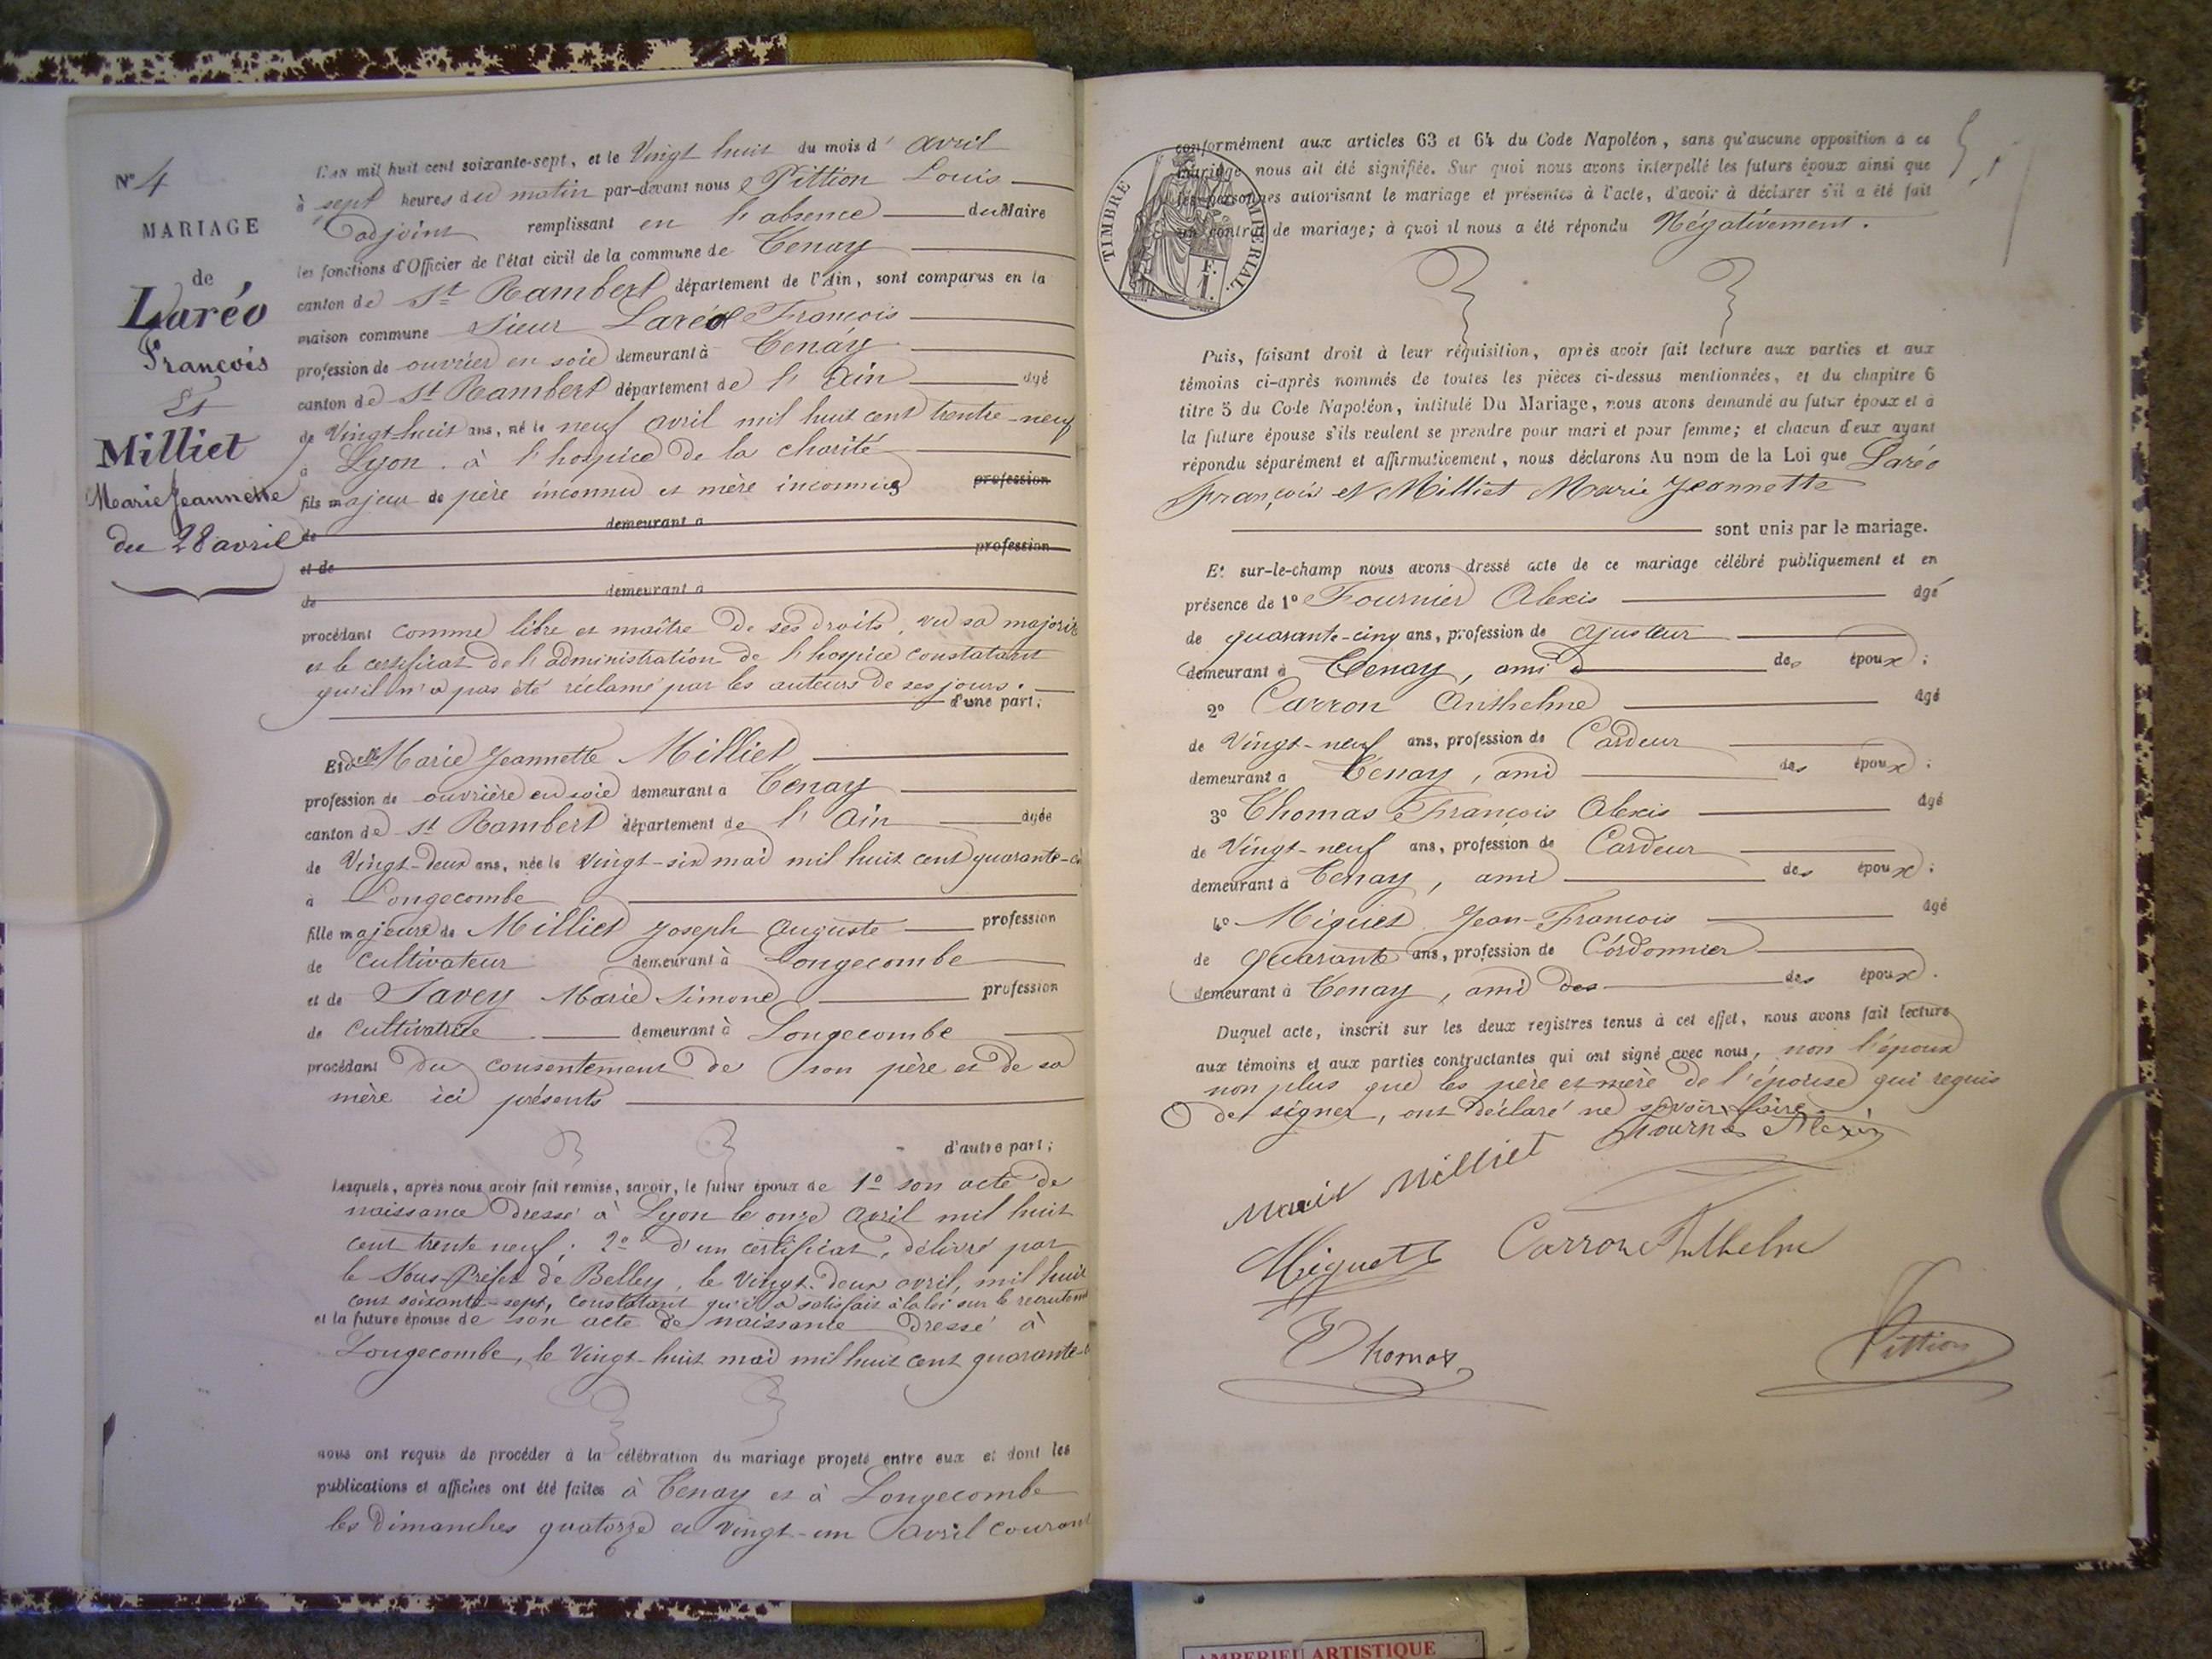 N° 4
MARIAGE
de
Laréo
François
Et
Milliet
Marie Jeannette
du 28 avril
L'an mil huit cent soixante-sept, et le Vingt huit du mois d' avril
à sept heures du matin par-devant nous Pittion Louis
adjoint remplissant en l'absence du Maire
les fonctions d'Officier de l'état civil de la commune de Tenay
canton de St Rambert département de l'Ain, sont comparus en la
maison commune Sieur Laréo François
profession de ouvrier en soie demeurant à Tenay
canton de St Rambert département de l'Ain âgé
de Vingt huit ans, né le neuf avril mil huit cent trente-neuf
à Lyon à l'hospice de la charité
fils majeur de père inconnu et mère inconnue profession
de demeurant à
et de profession
de demeurant à
procédant comme libre et maître de ses droits, vu sa majorit
et le certificat de l'administration de l'hospice constatant
qu'il n'a pas été réclamé par les auteurs de ses jours.
d'une part;
Et delle Marie Jeannette Milliet
profession de ouvrière en soie demeurant à Tenay
canton de St Rambert département de l'Ain âgée
de Vingt-deux ans, née le vingt-six mai mil huit cent quarante-
à Longecombe
fille majeure de Milliet Joseph Auguste profession
de cultivateur demeurant à Longecombe
et de Savey Marie Simone profession
de cultivatrice demeurant à Longecombe
procédant du consentement de son père et de sa
mère ici présents
d'autre part;
Lesquels, après nous avoir fait remise, savoir, le futur époux de 1° son acte de
naissance dressé à Lyon le onze avril mil huit
cent trente neuf; 2° d'un certificat, délivré par
le Sous-Préfet de Belley, le vingt-deux avril, mil huit
cent soixante-sept, constatant qu'il a satisfait à la loi sur le recrutem
et la future épouse de son acte de naissance dressé à
Longecombe, le vingt-huit mai mil huit cent quarante-
nous ont requis de procéder à la célébration du mariage projeté entre eux et dont les
publications et affiches ont été faites à Tenay et à Longecombe
les dimanches quatorze et vingt-un avril courant
TIMBRE IMPERIAL.
F.
1.
conformément aux articles 63 et 64 du Code Napoléon, sans qu'aucune opposition à ce
mariage nous ait été signifiée. Sur quoi nous avons interpellé les futurs époux ainsi que
les personnes autorisant le mariage et présentes à l'acte, d'avoir à déclarer s'il a été fait
un contrat de mariage; à quoi il nous a été répondu Négativement.
Puis, faisant droit à leur réquisition, après avoir fait lecture aux parties et aux
témoins ci-après nommés de toutes les pièces ci-dessus mentionnées, et du chapitre 6
titre 5 du Code Napoléon, intitulé Du Mariage, nous avons demandé au futur époux et à
la future épouse s'ils veulent se prendre pour mari et pour femme; et chacun d'eux ayant
répondu séparément et affirmativement, nous déclarons Au nom de la Loi que Laréo
François et Milliet Marie Jeannette
sont unis par le mariage.
Et sur-le-champ nous avons dressé acte de ce mariage célébré publiquement et en
présence de 1° Fournier Alexis âgé
de quarante-cinq ans, profession de ajusteur
demeurant à Tenay, ami des époux;
2° Carron Anthelme âgé
de Vingt-neuf ans, profession de Cardeur
demeurant à Tenay, ami des époux;
3° Thomas François Alexis âgé
de Vingt-neuf ans, profession de Cardeur
demeurant à Tenay, ami des époux;
4° Miguet Jean-François âgé
de quarante ans, profession de Cordonnier
demeurant à Tenay, ami des des époux.
Duquel acte, inscrit sur les deux registres tenus à cet effet, nous avons fait lecture
aux témoins et aux parties contractantes qui ont signé avec nous, non l'époux
non plus que les père et mère de l'épouse qui requis
de signer, ont déclaré ne savoir faire.
Marie Milliet Alexis
Miguet Carron Anthelme
Thomas
Pittion
AMBERIEU ARTISTIQUE